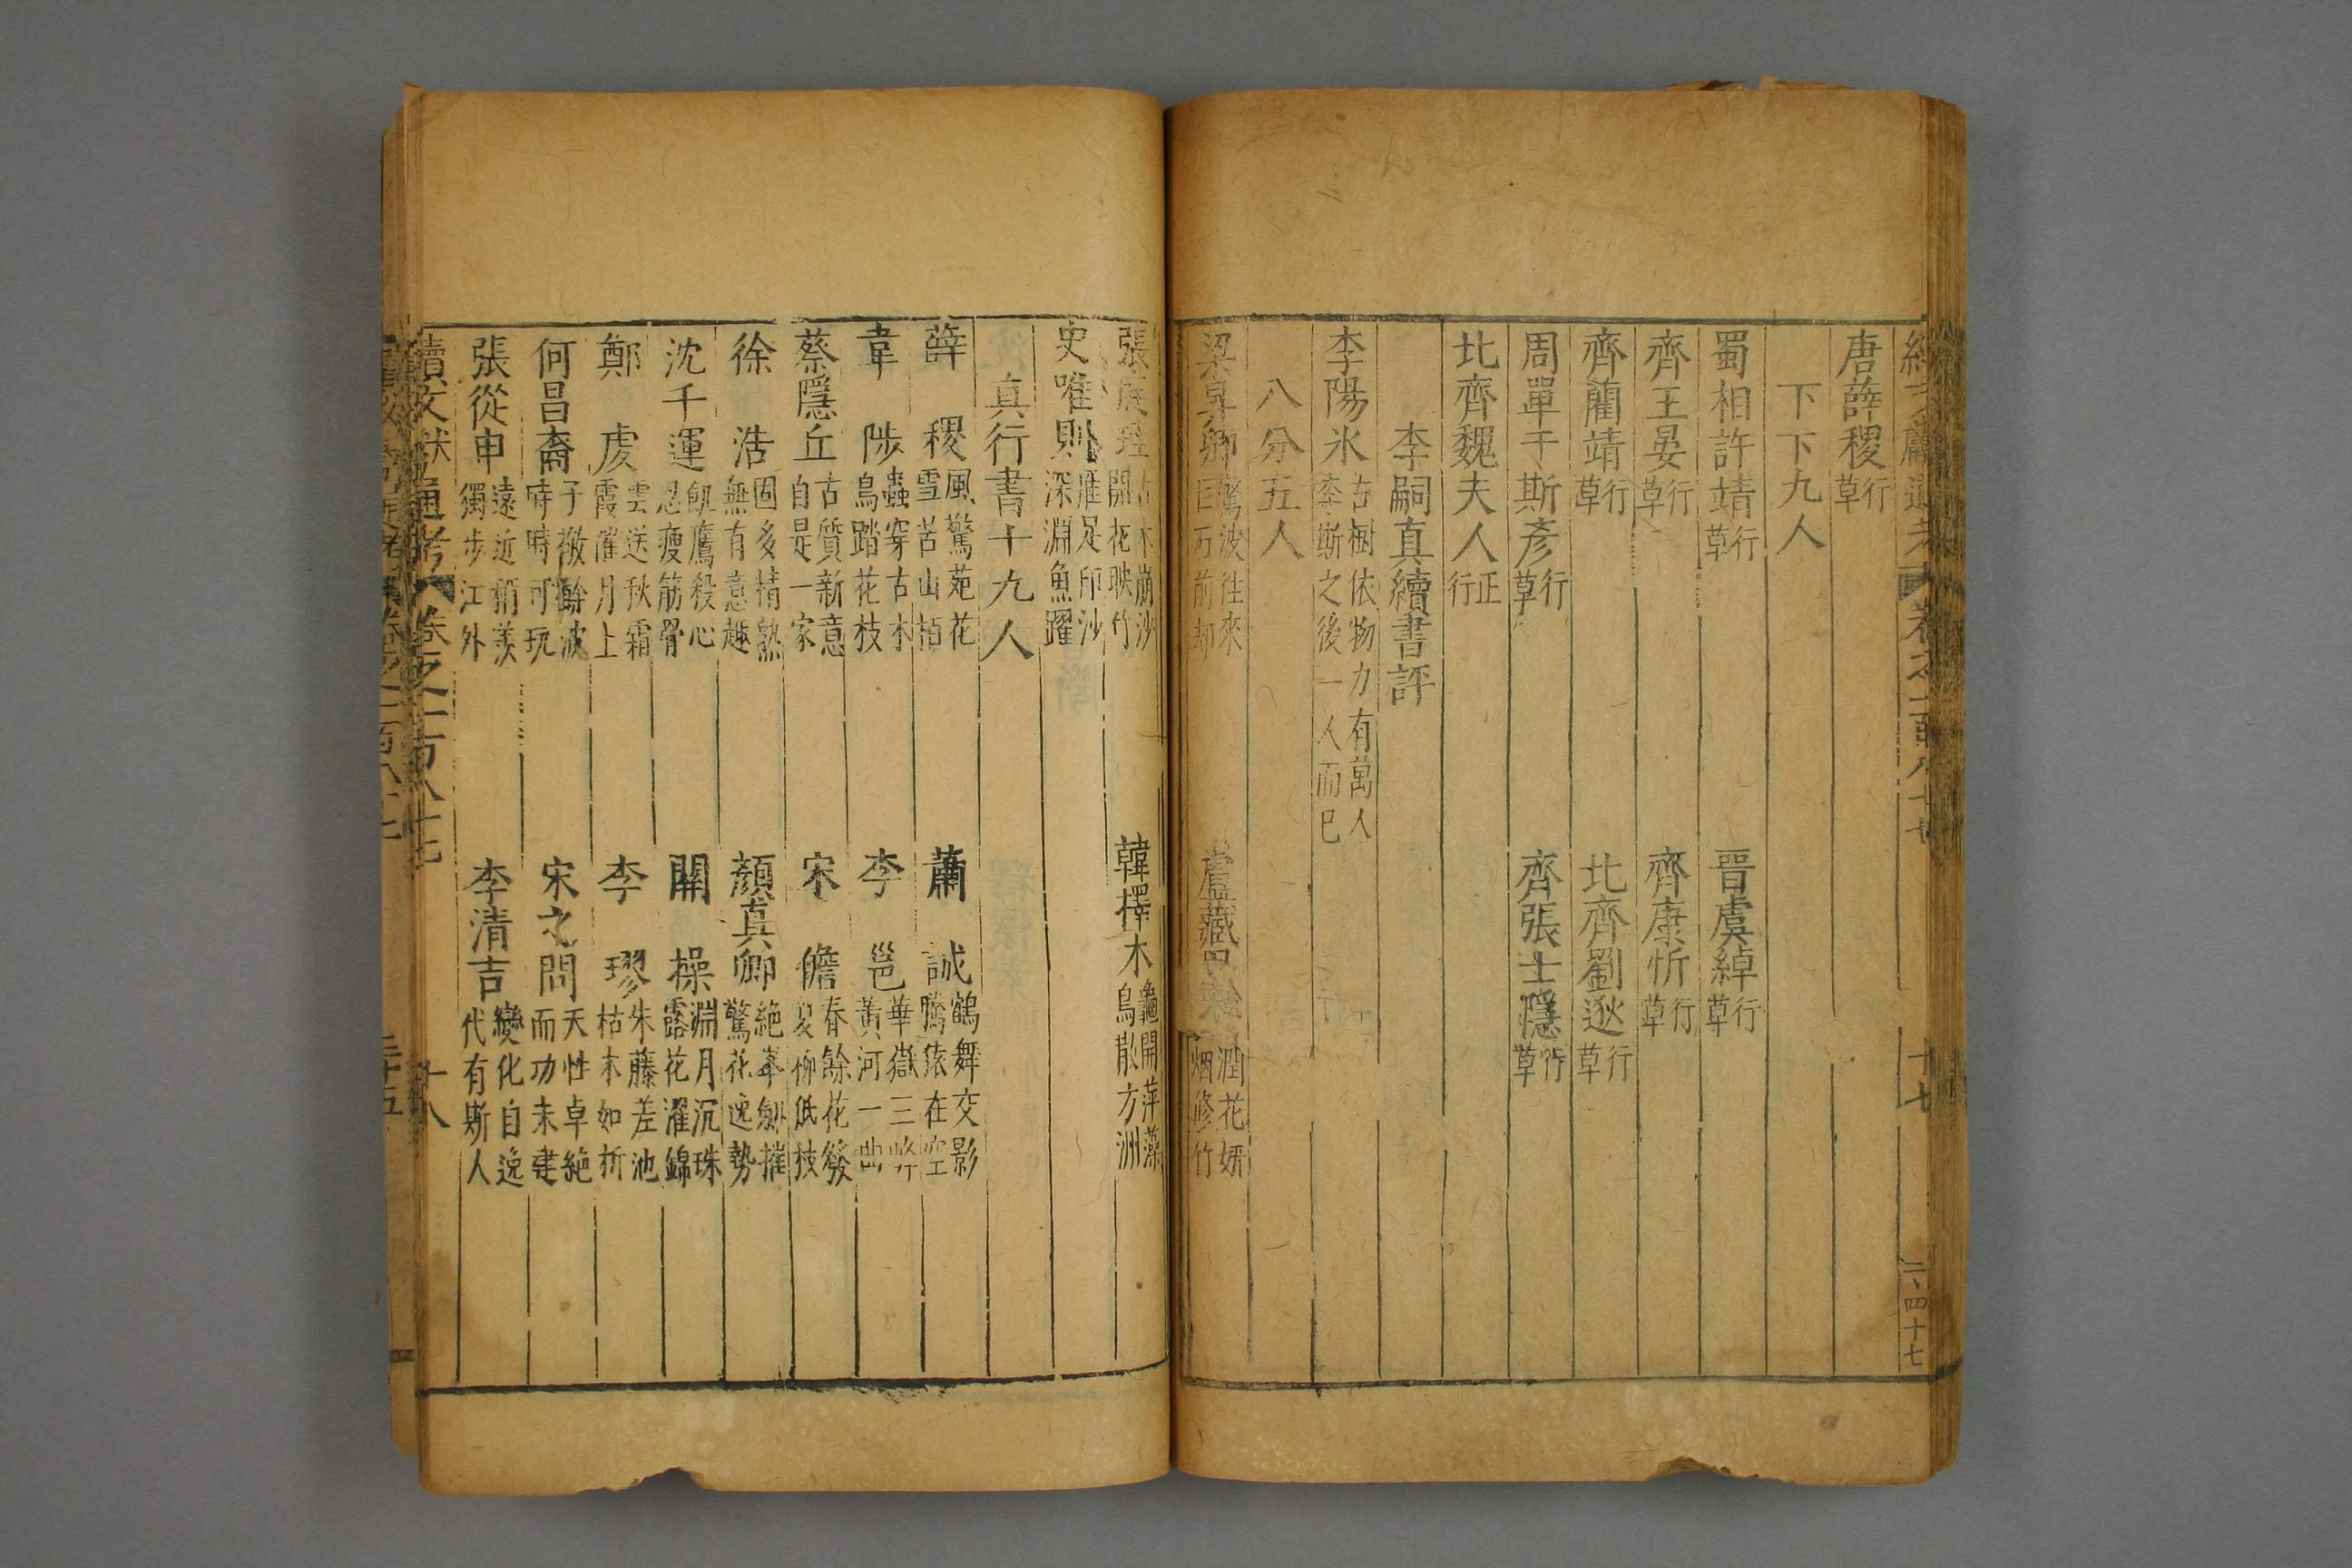 唐薛稷行草
下下九人
蜀相許靖行草　晉虞綽行草
齊王晏行草　齊康昕行草
齊藺靖行草　北齊劉逖行草
周單于斯彥行草　齊張士隱行草
北齊魏夫人正行
李嗣真續書評
李陽氷古樹依物力有萬人李斯之後一人而已
八分五人
梁昇卿驚波往來巨石前却　盧藏用潤花妍烟修竹
張庭珪古木崩沙開花映竹　韓擇木龜開萍藻鳥散方洲
史唯則雁足印沙深淵魚躍
真行書十九人
薛稷風驚苑花雪苦山栢　蕭誠鶴舞交影騰猿在空
韋陟蟲穿古木鳥踏花枝　李邕華嶽三峰黃河一曲
蔡隱丘古質新意自是一家　宋儋春餘花發夏柳低枝
徐浩固多精熟無有意趣　顏真卿絕峯劍摧驚花逸勢
沈千運飢鷹殺心忍瘦筋骨　關操淵月沉珠露花濯錦
鄭虔雲送秋霜霞催月上　李璆朱藤差池枯木如折
何昌裔子敬餘波時時可玩　宋之問天性卓絕而功未建
張從申遠近稍羡獨步江外　李清吉變化自逸代有斯人
續文獻通考　卷之一百八十七　十八